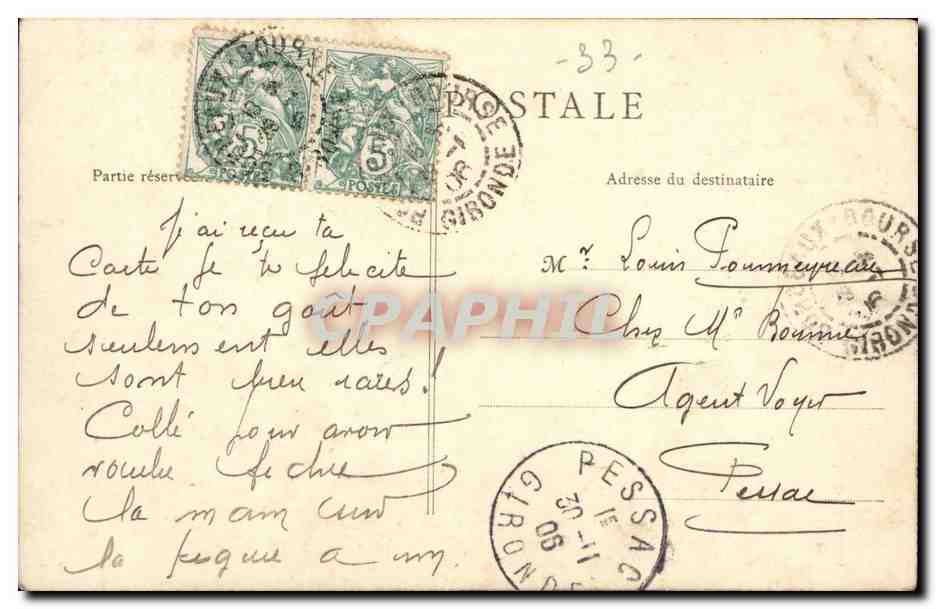 -33-
POSTALE
Partie réservée
Adresse du destinataire
BORDEAUX-BOURSE
GIRONDE
5 5
POSTES POSTES
J'ai reçu ta
Carte Je te félicite
de ton goût
seulement elles
sont bien rares!
Collé pour avoir
voulu
la main sur
la a un
Mr. Louis Pommeyreau
Chez Mr Bonnie
Agent Voyer
Pessac
PESSAC
GIRONDE
1E
30-11
06
BORDEAUX-BOURSE
GIRONDE
CPAPHIL